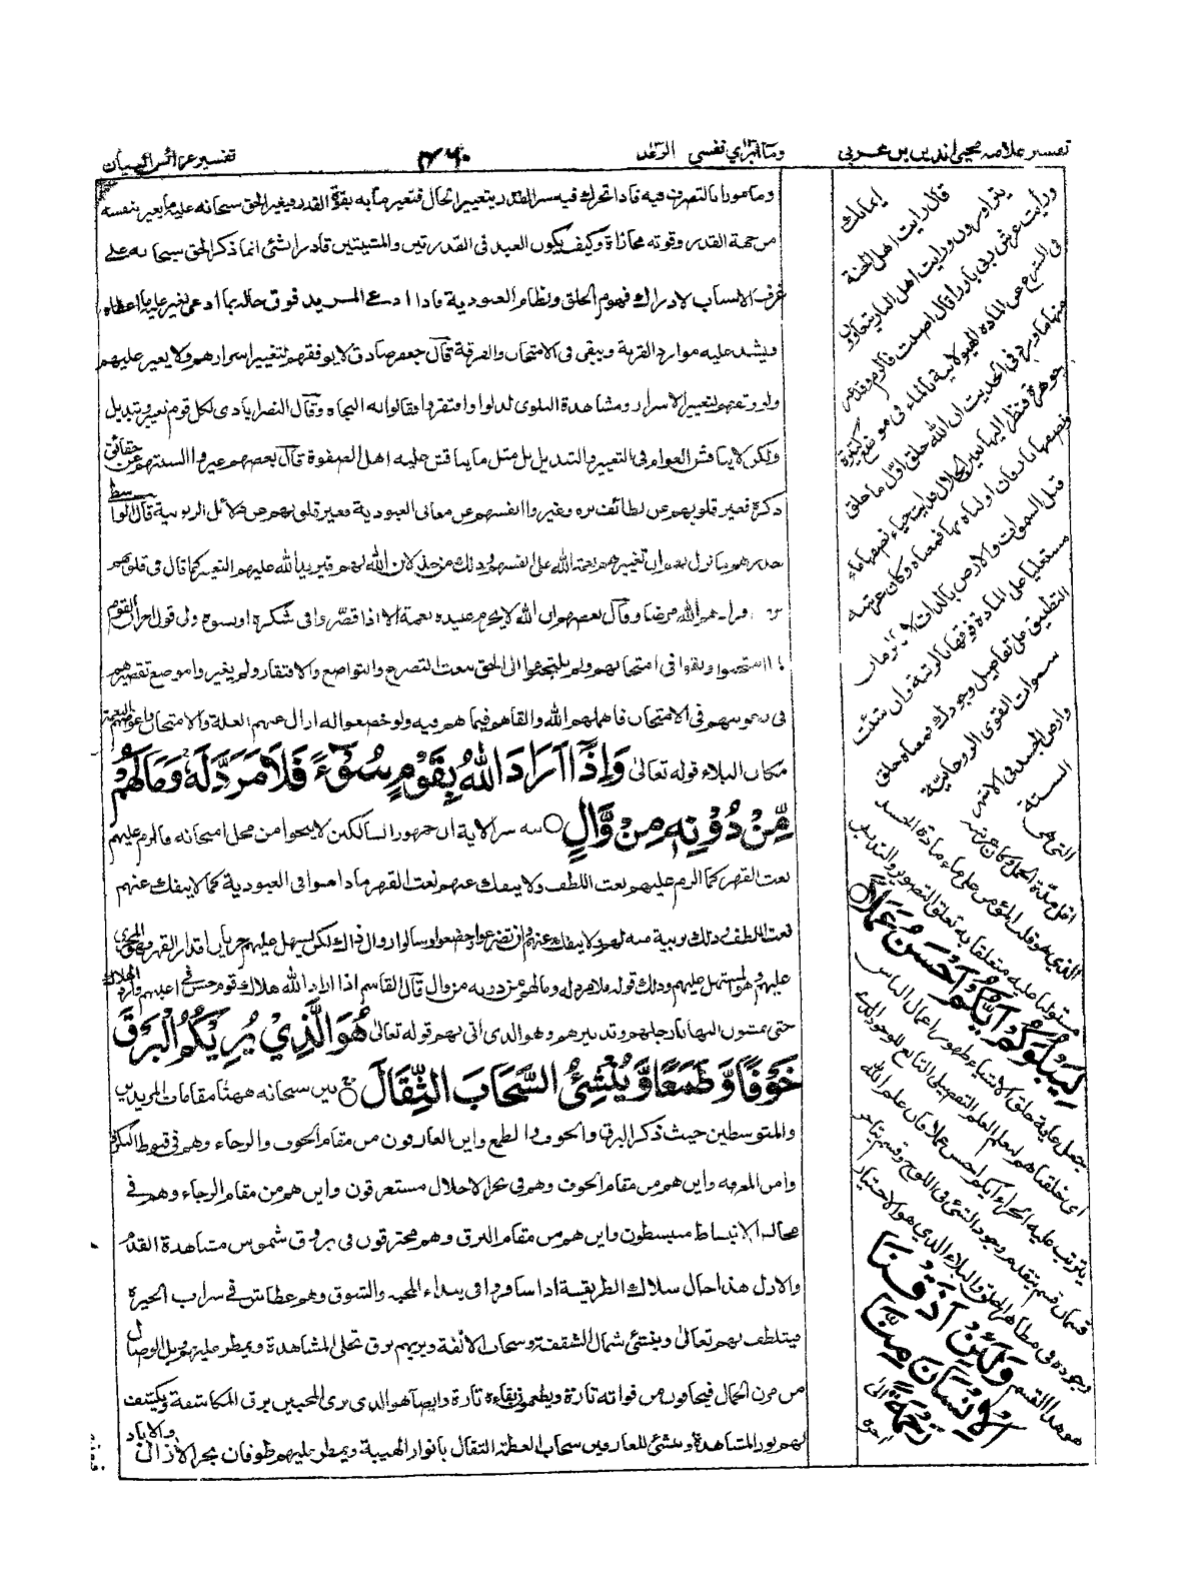 تفسير علامه محيى الدين بن عربى
وما ابرئ نفسى الرعد
۴۶۰
تفسير عرائس البيان
ومامورا بالتصرف فيه فاذا تحرك فيه سر القدر بتغيير الحال فتغير ما به بقوة القدر فيغير الحق سبحانه عليه ما يغير بنفسه
من جهة القدر وقوته مجازاة وكيف يكون العبد فى القدرتين والمشيتين قادر الشئ انما ذكر الحق سبحانه على
عرف الانساب لادراك فهوم الخلق ونظام العبودية فاذا ادعى المريد فوق حاله بما ادعى يغير عليه ما اعطاه
ويشد عليه موارد القربة ويبقى فى الامتحان والفرقة قال جعفر صادق لا يوفقهم لتغيير اسرارهم ولا يغير عليهم
ولو وفقهم لتغيير الاسرار ومشاهدة البلوى لذلوا وافتقروا فنالوا به النجاة وقال النصراباذى لكل قوم تغيير وتبديل
ولكن لا يناقش العوام فى التغيير والتبديل بل مثل ما يناقش عليه اهل الصفوة قال بعضهم غيروا السنتهم عن حقائق
ذكره فغير قلوبهم عن لطائف بره وغيروا انفسهم عن معانى العبودية فغير قلوبهم عن دلائل الربوبية قال الواسطى
الله على انفسهم وذلك من لان الله لهم قبر يبد الله عليهم التغيير كما قال فى قلوبهم
مرض فزادهم الله مرضا وقال بعضهم ان الله لا يحرم عبيده نعمة الا اذا قصروا فى شكره او نسوه ولى قول اخر ان القوم
لما امتحنوا وبقوا فى امتحانهم ولم يلتجئوا الى الحق بنعت التضرع والتواضع والافتقار ولم يغيروا موضع تقصيرهم
فى نفوسهم فى الامتحان فاهملهم الله والقاهم فيما هم فيه ولو خضعوا له ازال عنهم العلة والامتحان واعوضهم النعمة
مكان البلاء قوله تعالى وَاِذَآ اَرَادَ اللّٰهُ بِقَوْمٍ سُوْٓءًا فَلَا مَرَدَّ لَهٗ وَمَا لَهُمْ
مِّنْ دُوْنِهٖ مِنْ وَّالٍ ○ سر الاية ان جمهور السالكين لا ينجوا من محل امتحانه فالزم عليهم
نعت القهر كما الزم عليهم نعت اللطف ولا ينفك عنهم نعت القهر ما داموا فى العبودية كما لا ينفك عنهم
نعت اللطف وذلك تربية منه لهم ولا ينفك عنهم وان تضرعوا وخضعوا وسالوا زوال ذلك لكن يسهل عليهم جريان اقدار القهر وهو المجرى
عليهم وهو المسهل عليهم وذلك قوله فلا مرد له وما لهم من دونه من وال قال القاسم اذا اراد الله هلاك قوم حسن فى اعينهم موارد الهلاك
حتى يمشون اليها بارجلهم وتدبيرهم وهو الذى اتى بهم قوله تعالى هُوَ الَّذِيْ يُرِيْكُمُ الْبَرْقَ
خَوْفًا وَّطَمَعًا وَّيُنْشِئُ السَّحَابَ الثِّقَالَ ○ بين سبحانه ههنا مقامات المريدين
والمتوسطين حيث ذكر البرق والخوف والطمع واين العارفون من مقام الخوف والرجاء وهم فى
واين هم من مقام الخوف وهم فى بحر الاجلال مستغرقون واين هم من مقام الرجاء وهم فى
محال الانبساط منبسطون واين هم من مقام البرق وهم محترقون فى بروق شموس مشاهدة القدم
والازل هذا حال سلاك الطريقة اذا سافروا فى بيداء المحبة والشوق وهم عطاش فى سراب الحيرة
فيتلطف بهم تعالى وينشئ شمال الشفقة وسحاب الالفة ويريهم برق تجلى المشاهدة ويمطر عليهم وبل الوصال
من مزن الجمال فيخافون من فواته تارة ويطمعون بقاءه تارة وايضا هو الذى يرى المحبين برق المكاشفة ويكشف
لهم نور المشاهدة وينشئ للعارفين سحاب العظمة الثقال بانوار الهيبة ويمطر عليهم طوفان بحر الازال والاباد
ايمانك
قال رايت اهل الجنة
يتزاورون ورايت اهل النار يتعاوون
ورأيت عرش ربى بارزا قال اصبت فالزم وقد عبر
فى الشرع عن المادة الهيولانية بالماء فى مواضع كثيرة
منها ما ورد فى الحديث ان الله خلق اول ما خلق
جوهرة فنظر اليها بعين الجلال فذابت حياء نصفها ماء
ونصفها نار وان اولناه بها فمعناه وكان عرشه
قبل السموات والارض بالذات لا بالزمان
مستعليا على المادة فوقها بالرتبة وان شئت
التطبيق على تفاصيل وجودك فمعناه خلق
سموات القوى الروحانية
وارض الجسد فى الاشهر
الستة
التى هى
اقل مدة الحمل وكان عرشه
الذى هو قلب المؤمن على ماء مادة الجسد
مستوليا عليه متعلقا به تعلق التصوير والتدبير
لِيَبْلُوَكُمْ اَيُّكُمْ اَحْسَنُ عَمَلًا ○
جعل غاية خلق الاشياء ظهور اعمال الناس
اى خلقناهم لنعلم العلم التفصيلى التابع للوجود الذى
يترتب عليه الجزاء ايكم احسن عملا فان علم الله
قسمان قسم يتقدم وجود الشئ فى اللوح وقسم يتاخر
وجوده فى مظاهر الخلق والبلاء الذى هو الاختبار
هو هذا القسم وَلَئِنْ اَذَقْنَا
الْاِنْسَانَ مِنَّا
رَحْمَةً الى
اخره